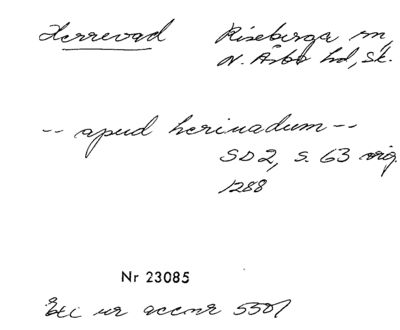 Herrevad Riseberga sn,
N. Åsbo hd, Sk.
-- apud herivadum --
SD 2, s. 63 orig.
1288
Nr 23085
Ex ur accnr 5501